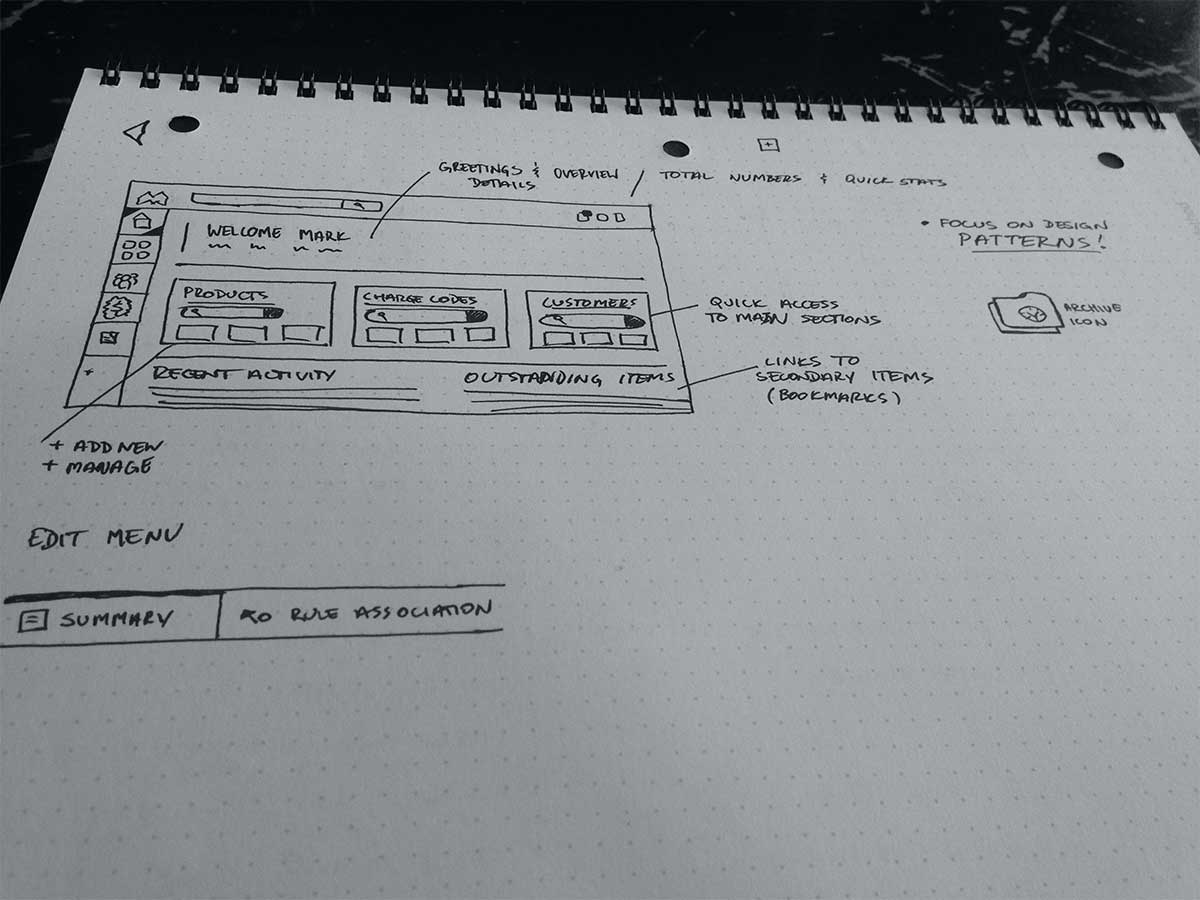 GREETINGS & OVERVIEW
DETAILS
/ TOTAL NUMBERS & QUICK STATS
• FOCUS ON DESIGN
PATTERNS!
WELCOME MARK
PRODUCTS
CHARGE CODES
CUSTOMERS
QUICK ACCESS
TO MAIN SECTIONS
ARCHIVE
ICON
RECENT ACTIVITY
OUTSTADIDING ITEMS
LINKS TO
SECONDARY ITEMS
(BOOKMARKS)
+ ADD NEW
+ MANAGE
EDIT MENU
SUMMARY
RULE ASSOCIATION